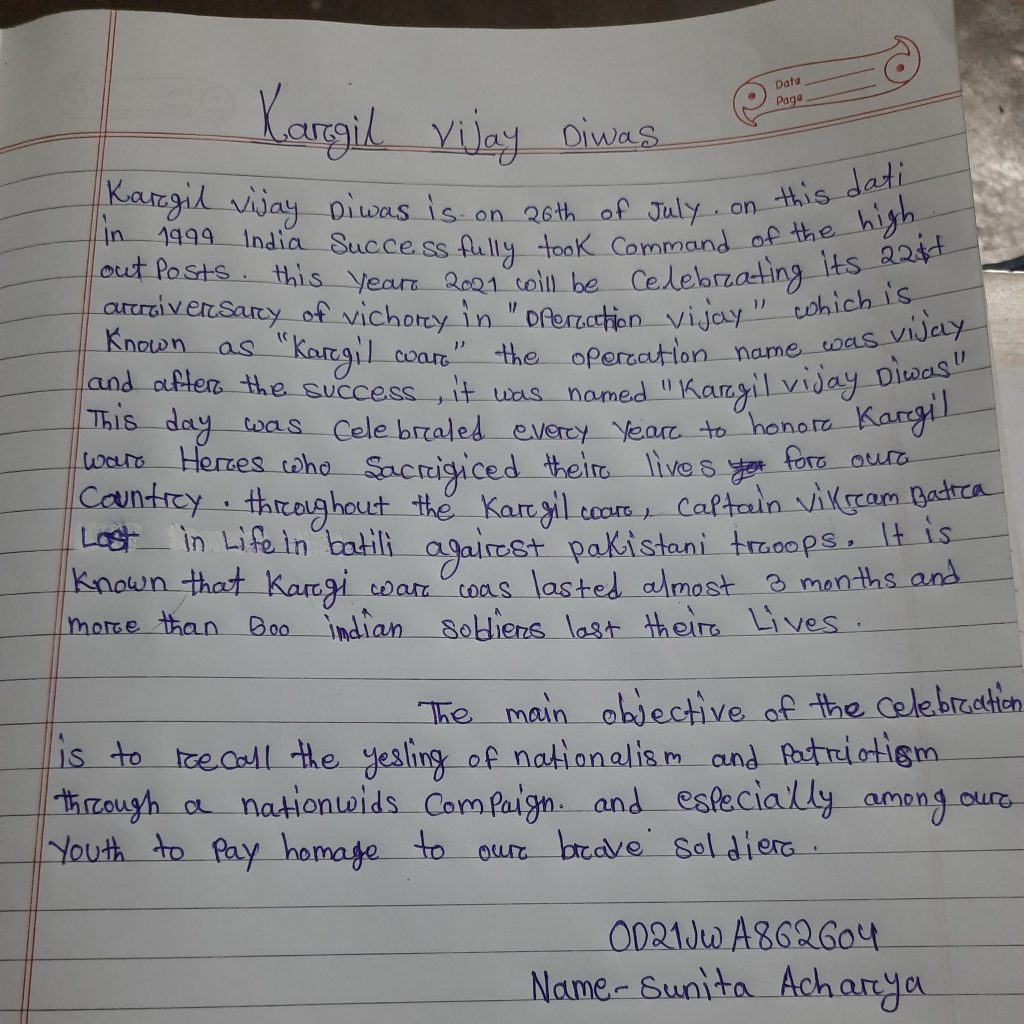 Date
Page
Kargil Vijay Diwas
Kargil vijay Diwas is on 26th of July. on this dati
in 1999 India Successfully took Command of the high
out Posts. this year 2021 will be Celebrating its 22st
anniversary of vichory in "Operation vijay" which is
Known as "Kargil war" the operation name was vijay
and after the success, it was named "Kargil vijay Diwas"
This day was Celebraled every year to honor Kargil
war Heroes who Sacrigiced their lives for our
Country. throughout the Kargil war, Captain Vikram Batra
Lost in Life in batili against pakistani troops. It is
Known that Kargi war was lasted almost 3 months and
more than 500 indian soldiers last their Lives.
The main objective of the celebration
is to recall the yesling of nationalism and Patriotism
through a nationwids Compaign. and especially among our
Youth to Pay homage to our brave soldier.
OD21JWA862604
Name- Sunita Acharya